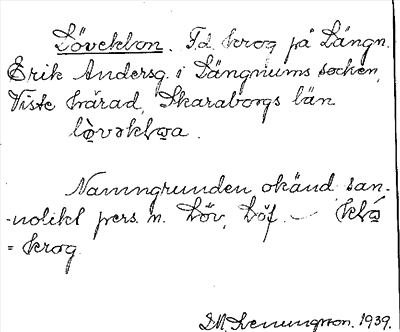 Lövekloa. F.d. krog på Längn.
Erik Andersg. i Längnums socken,
Viste härad, Skaraborgs län
Namngrunden okänd san-
-nolikt pers. n. Löv, Löf. — klå
= krog
1939.